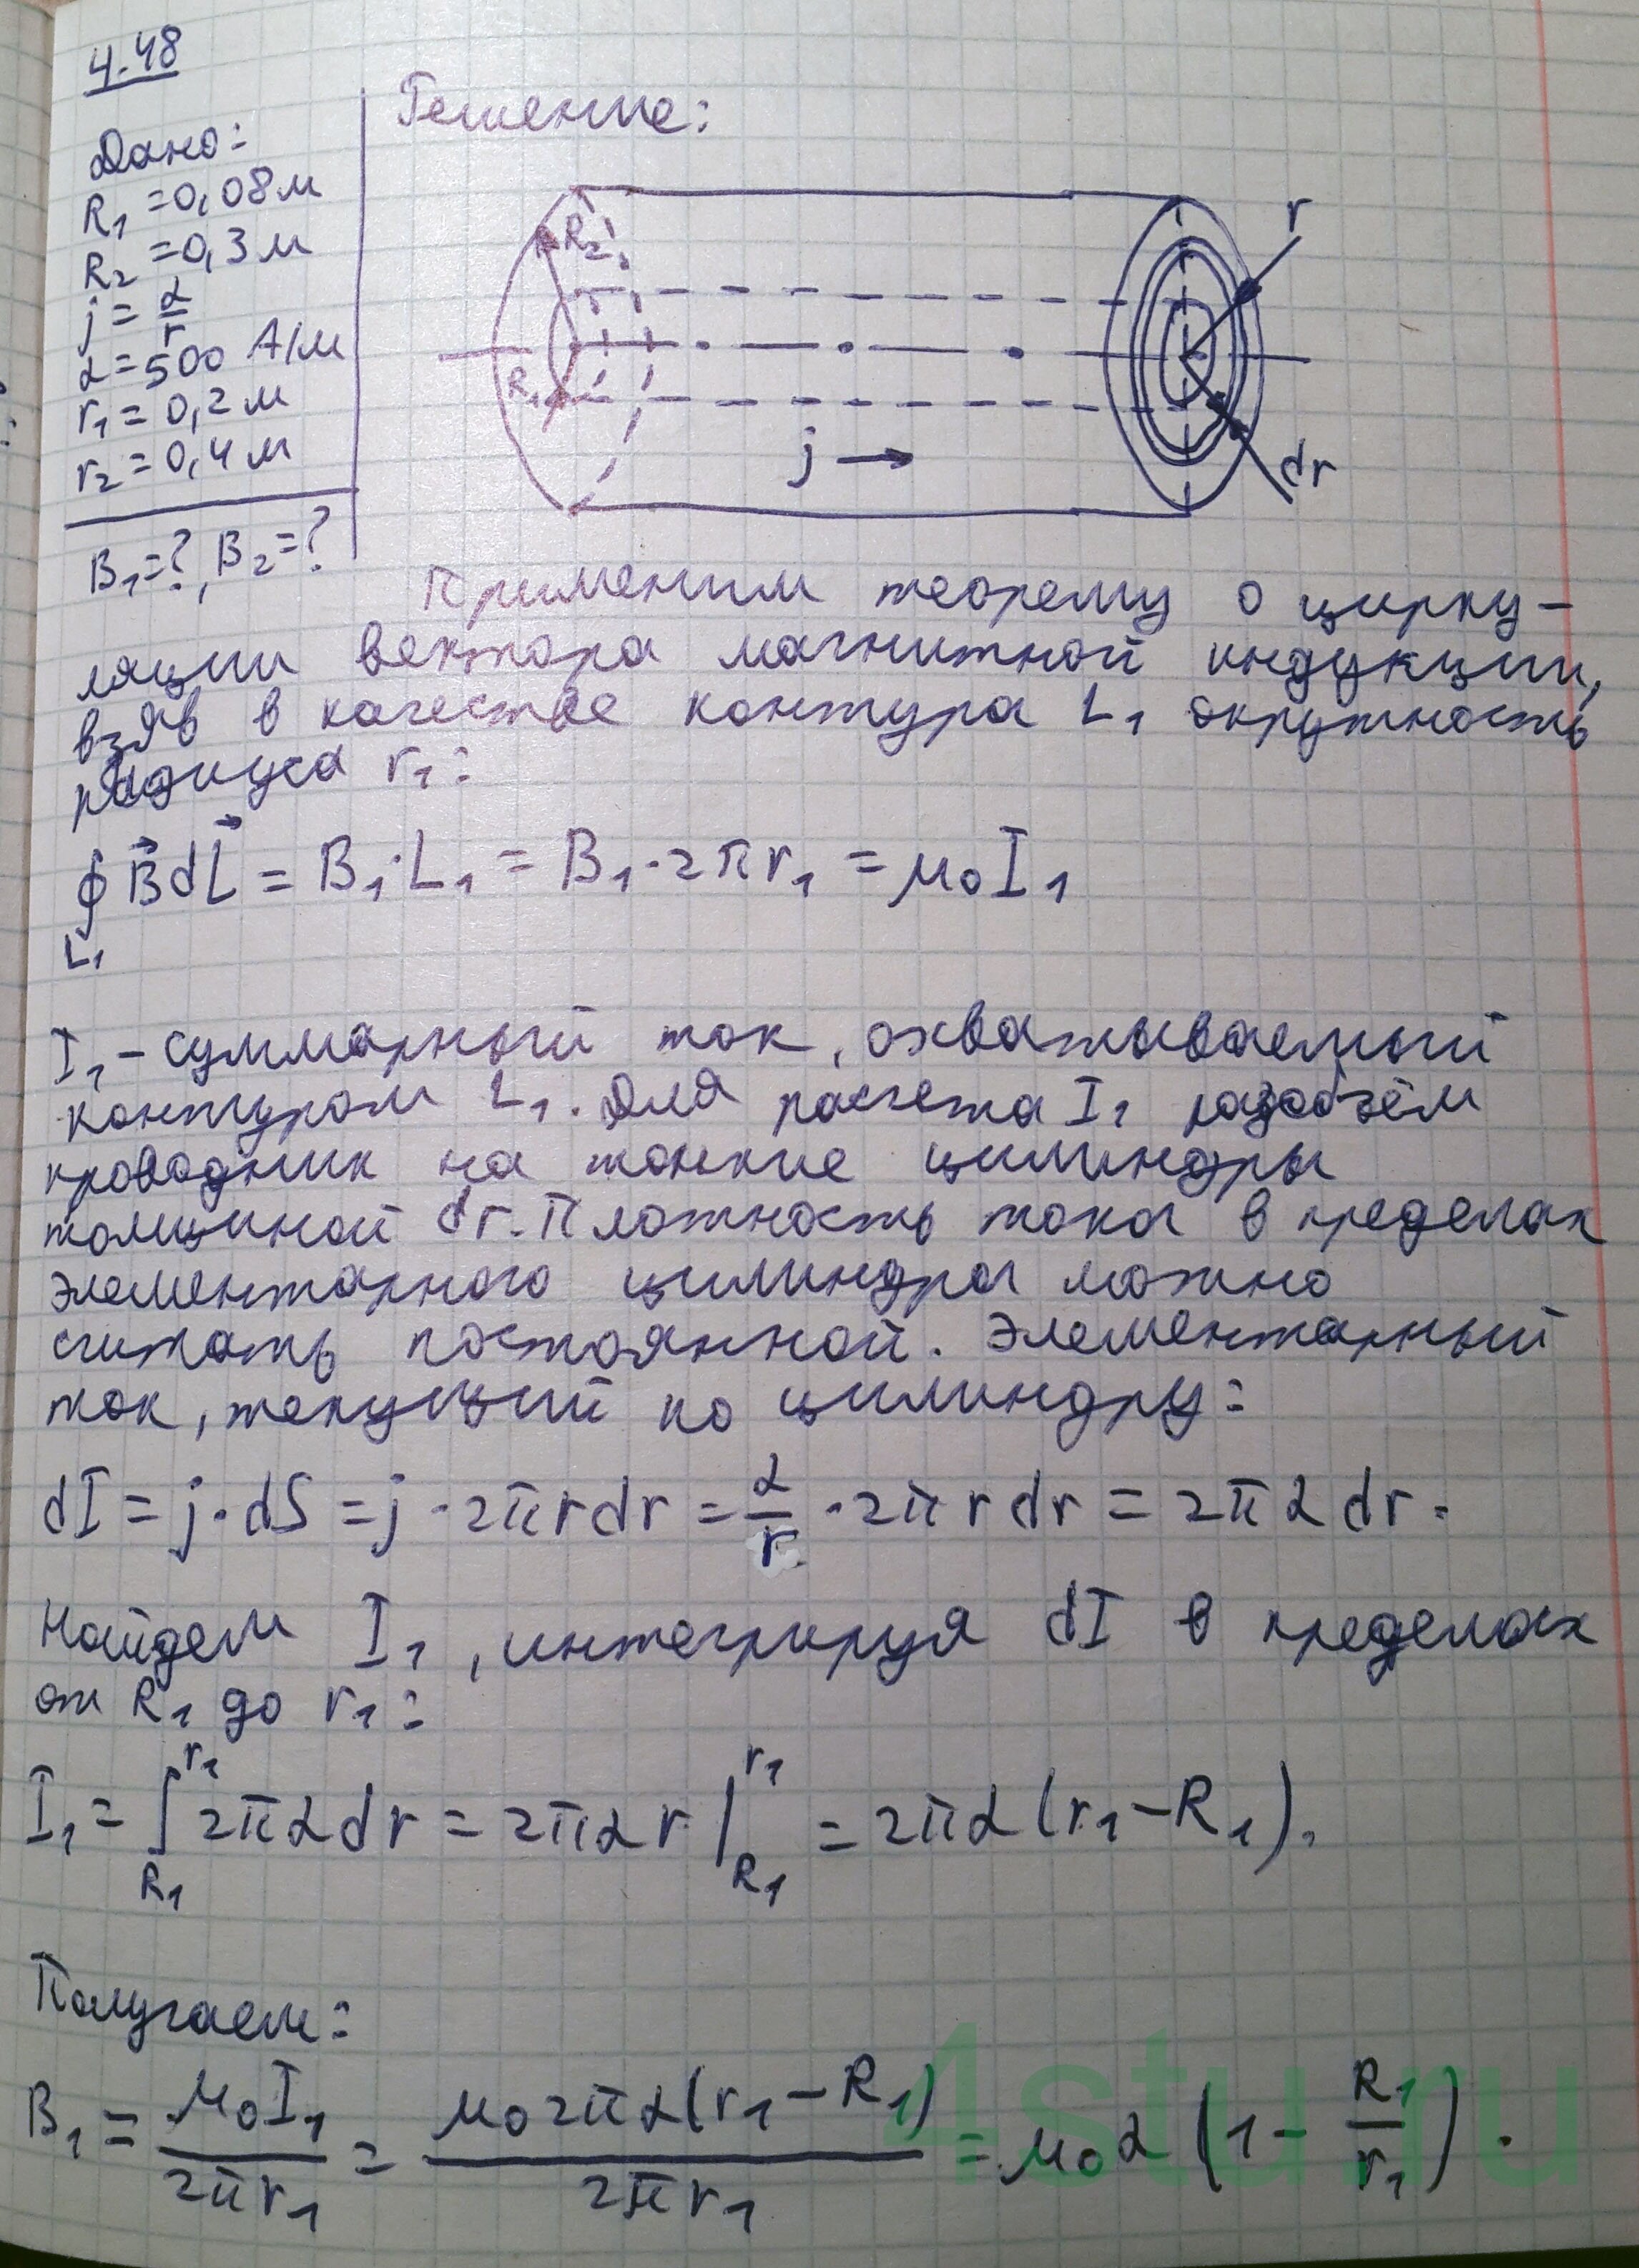 4.48
Дано:
R₁ = 0,08 м
R₂ = 0,3 м
j = α/r
α = 500 А/м
r₁ = 0,2 м
r₂ = 0,4 м
B₁ = ?, B₂ = ?
Решение:
R₂
R₁
r
dr
j →
Применим теорему о цирку-
ляции вектора магнитной индукции,
взяв в качестве контура L₁ окружность
радиуса r₁:
∮ B⃗ dL⃗ = B₁·L₁ = B₁·2πr₁ = μ₀I₁
L₁
I₁ – суммарный ток, охватываемый
контуром L₁. Для расчета I₁ разобьём
проводник на тонкие цилиндры
толщиной dr. Плотность тока в пределах
элементарного цилиндра можно
считать постоянной. Элементарный
ток, текущий по цилиндру:
dI = j·dS = j·2πr dr = α/r · 2πr dr = 2πα dr.
Найдем I₁, интегрируя dI в пределах
от R₁ до r₁:
I₁ = ∫_{R₁}^{r₁} 2πα dr = 2παr |_{R₁}^{r₁} = 2πα(r₁ – R₁).
Получаем:
B₁ = μ₀I₁/2πr₁ = μ₀2πα(r₁ – R₁)/2πr₁ = μ₀α(1 – R₁/r₁).
4stu.ru